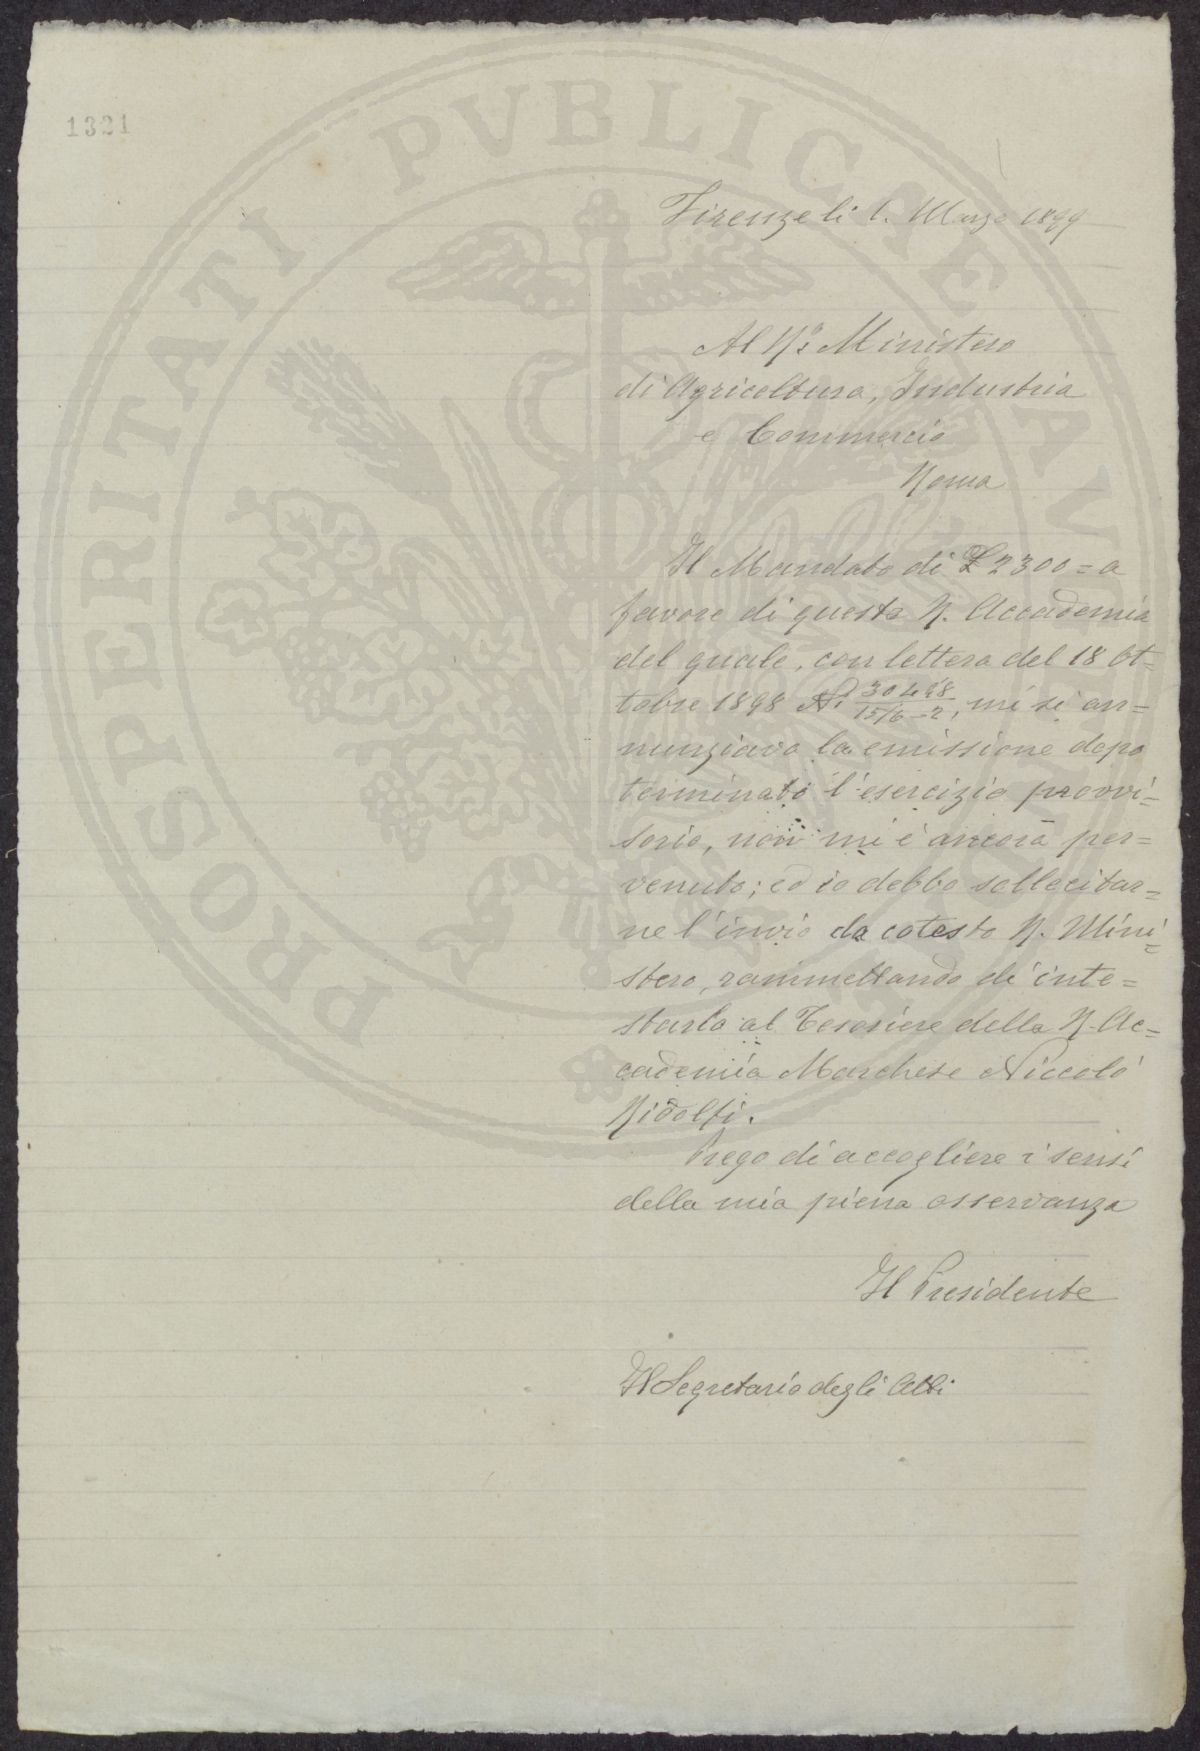 1321
PROSPERITATI PVBLICAE AVGENDAE
Firenze li 1. Marzo 1899
Al R.º Ministero
di Agricoltura, Industria
e Commercio
Roma
Il Mandato di £ 2300 = a
favore di questa R. Accademia
del quale, con lettera del 18 Ot=
tobre 1898 Nº 30498/15/6-2, mi si an=
nunziava la emissione dopo
terminato l'esercizio provvi=
sorio, non mi è ancora per=
venuto; ed io debbo sollecitar=
ne l'invio da cotesto R. Mini=
stero, rammettando di inte=
starlo al Tesoriere della R. Ac=
cademia Marchese Niccolò
Ridolfi.
Prego di accogliere i sensi
della mia piena osservanza
Il Presidente
Il Segretario degli Atti